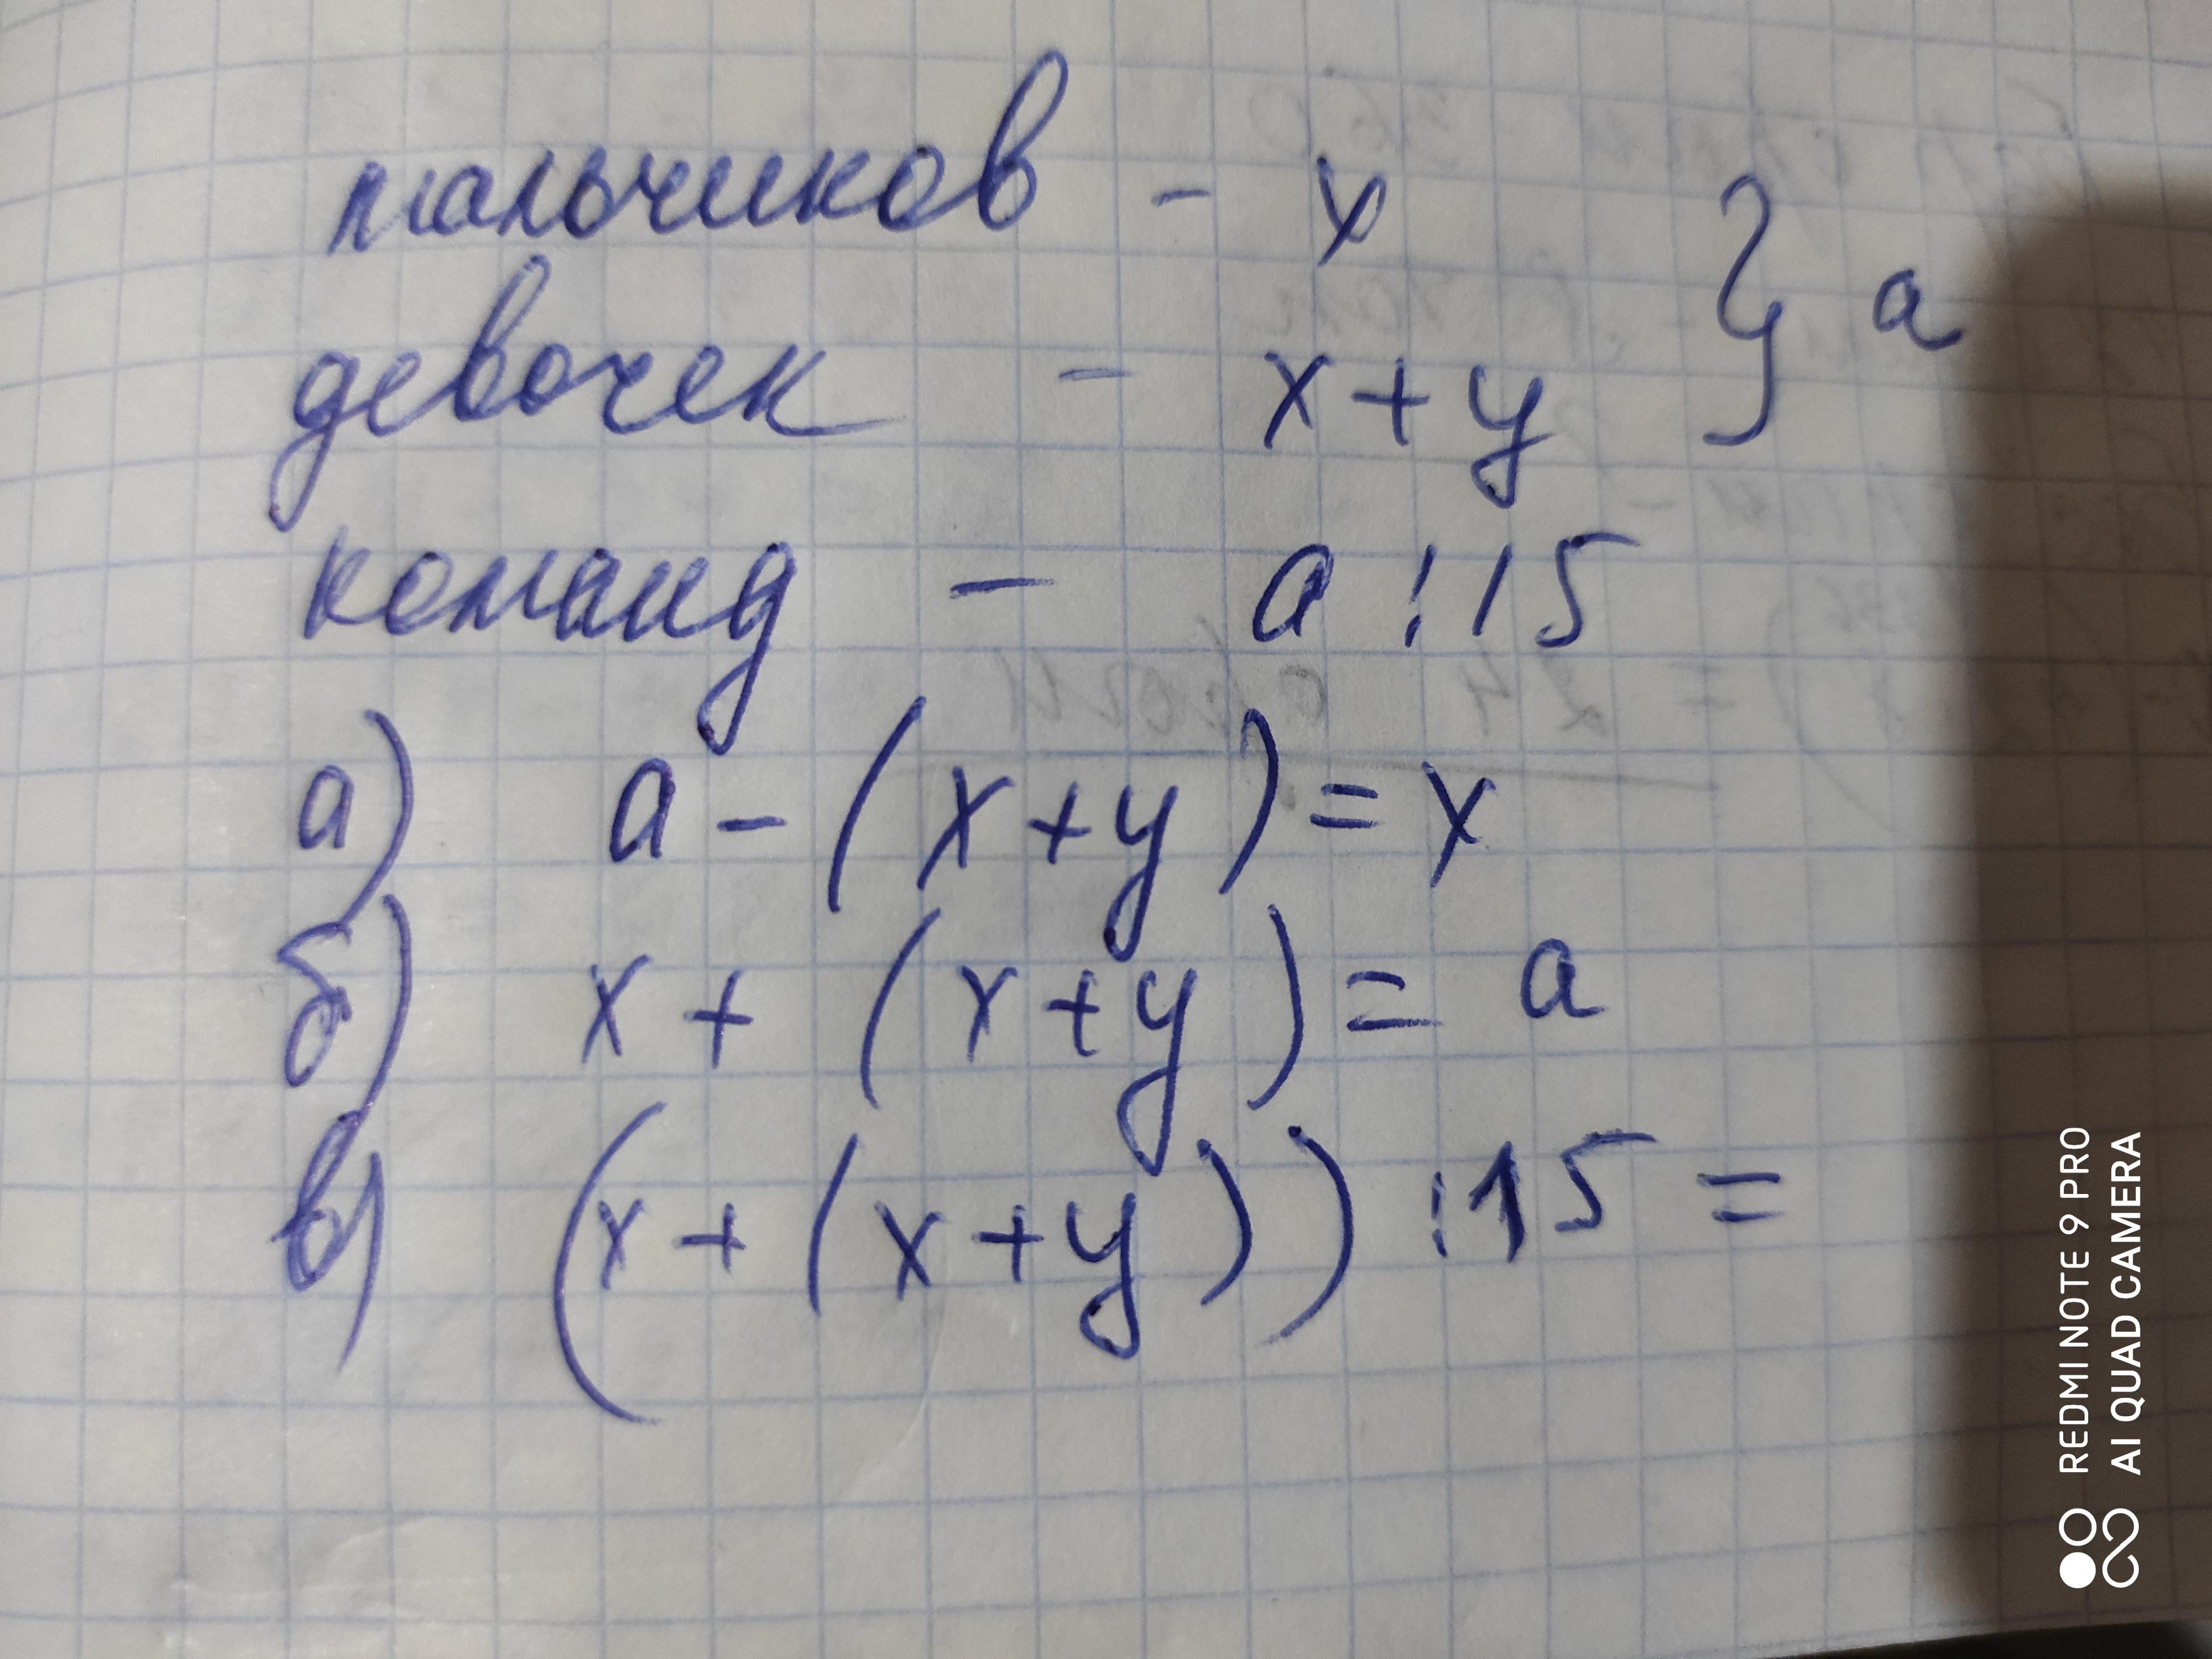 мальчиков - x
девочек - x+y } a
команд - a : 15
а) a - (x+y) = x
б) x + (x+y) = a
в) (x + (x+y)) : 15 =
REDMI NOTE 9 PRO
AI QUAD CAMERA